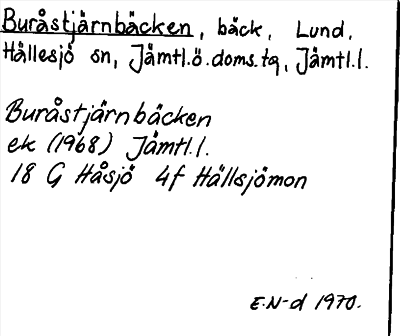 Buråstjärnbäcken, bäck, Lund,
Hällesjö sn, Jämtl.ö.doms.tg, Jämtl.l.
Buråstjärnbäcken
ek (1968) Jämtl.l.
18 G Håsjö 4f Hällsjömon
E.N-d 1970.